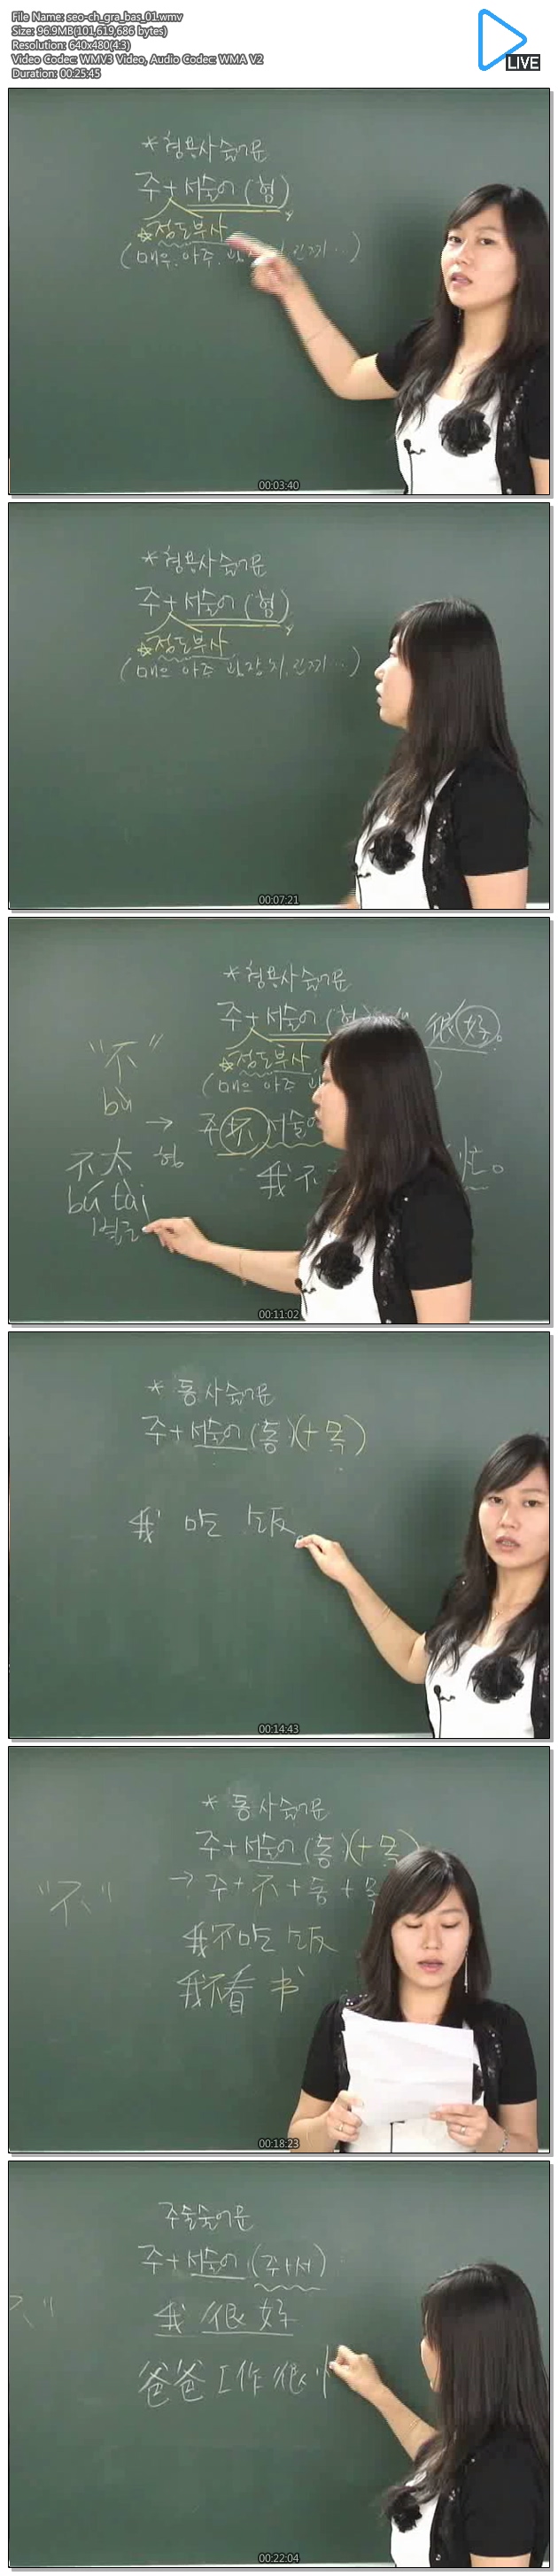 File Name: seo-ch_gra_bas_01.wmv
Size: 96.9MB(101,619,686 bytes)
Resolution: 640x480(4:3)
Video Codec: WMV3 Video, Audio Codec: WMA V2
Duration: 00:25:45
LIVE
*형용사술어문
주+서술어(형)
☆정도부사
(매우, 아주,
00:03:40
*형용사술어문
주+서술어(형)
☆정도부사
(매우 아주 굉장히, 진짜…)
00:07:21
*형용사술어문
주+서술어(형) 很好。
"不" ☆정도부사
bù (매우 아주
→ 주 不 서술어
不太 형
我不 忙。
bú tài
별로
00:11:02
*동사술어문
주+서술어(동)(+목)
我 吃 饭。
00:14:43
*동사술어문
주+서술어(동)(+목)
"不" → 주+不+동+목
我不吃饭
我不看书
00:18:23
주술술어문
주+서술어(주+서)
我 很好
爸爸工作很
00:22:04